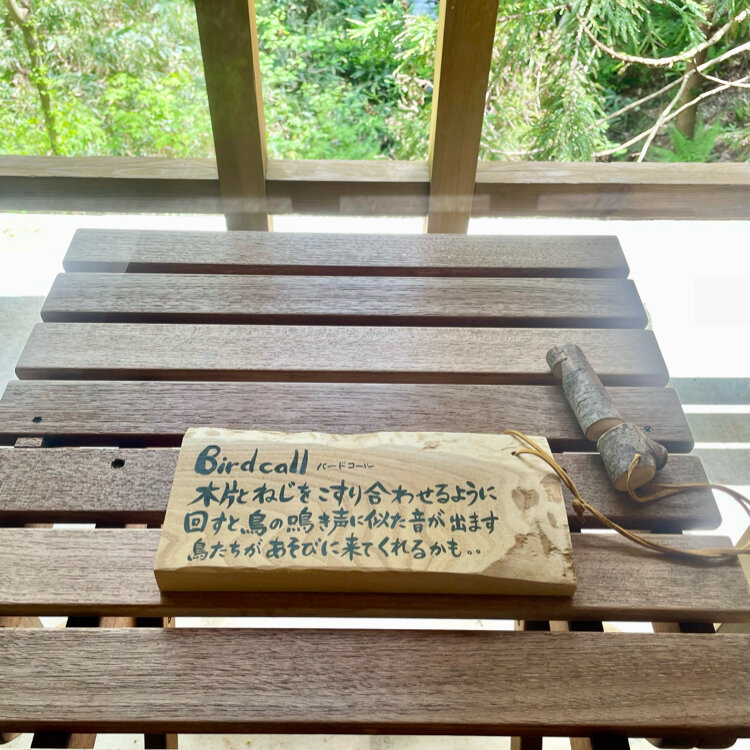 Birdcall バードコール
木片とねじをこすり合わせるように
回すと鳥の鳴き声に似た音が出ます
鳥たちがあそびに来てくれるかも..